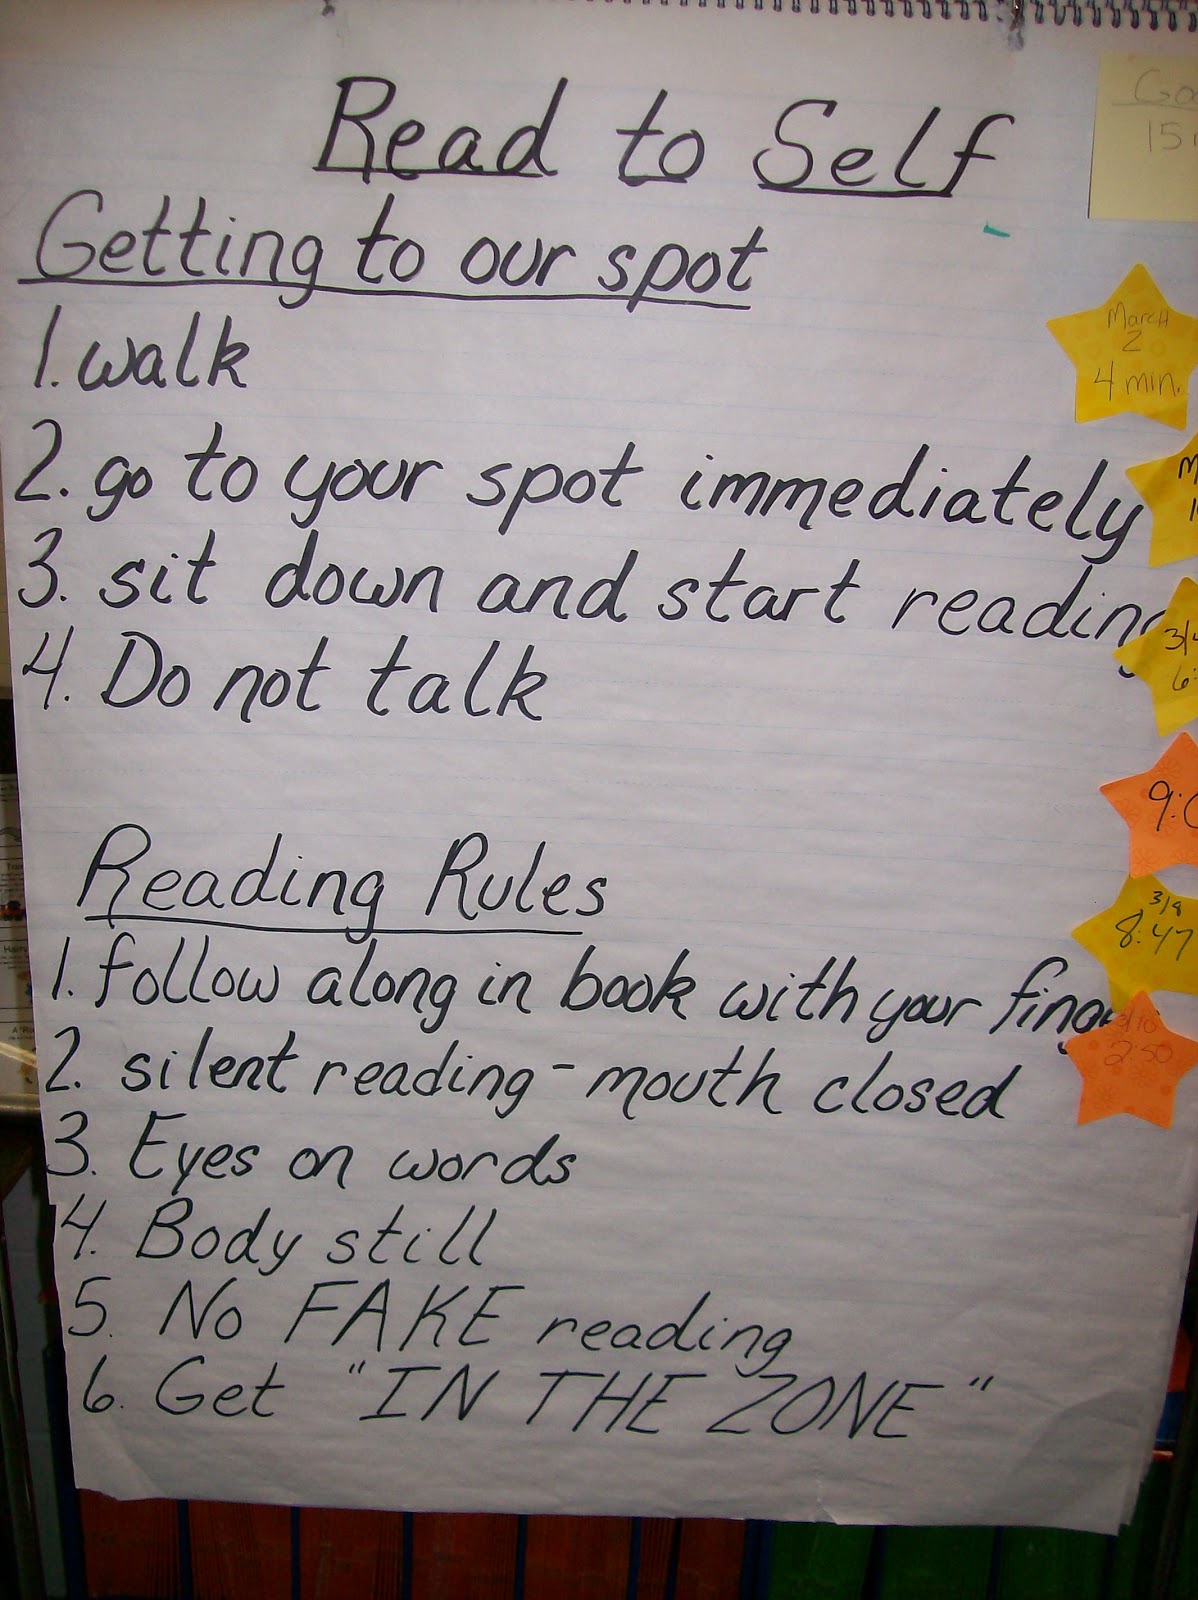 Read to Self
Getting to our spot
1. walk
2. go to your spot immediately
3. sit down and start reading
4. Do not talk
Reading Rules
1. follow along in book with your
2. silent reading - mouth closed
3. Eyes on words
4. Body still
5. No FAKE reading
6. Get "IN THE ZONE"
15
March
2
4 min.
3/8
8:47
2:50